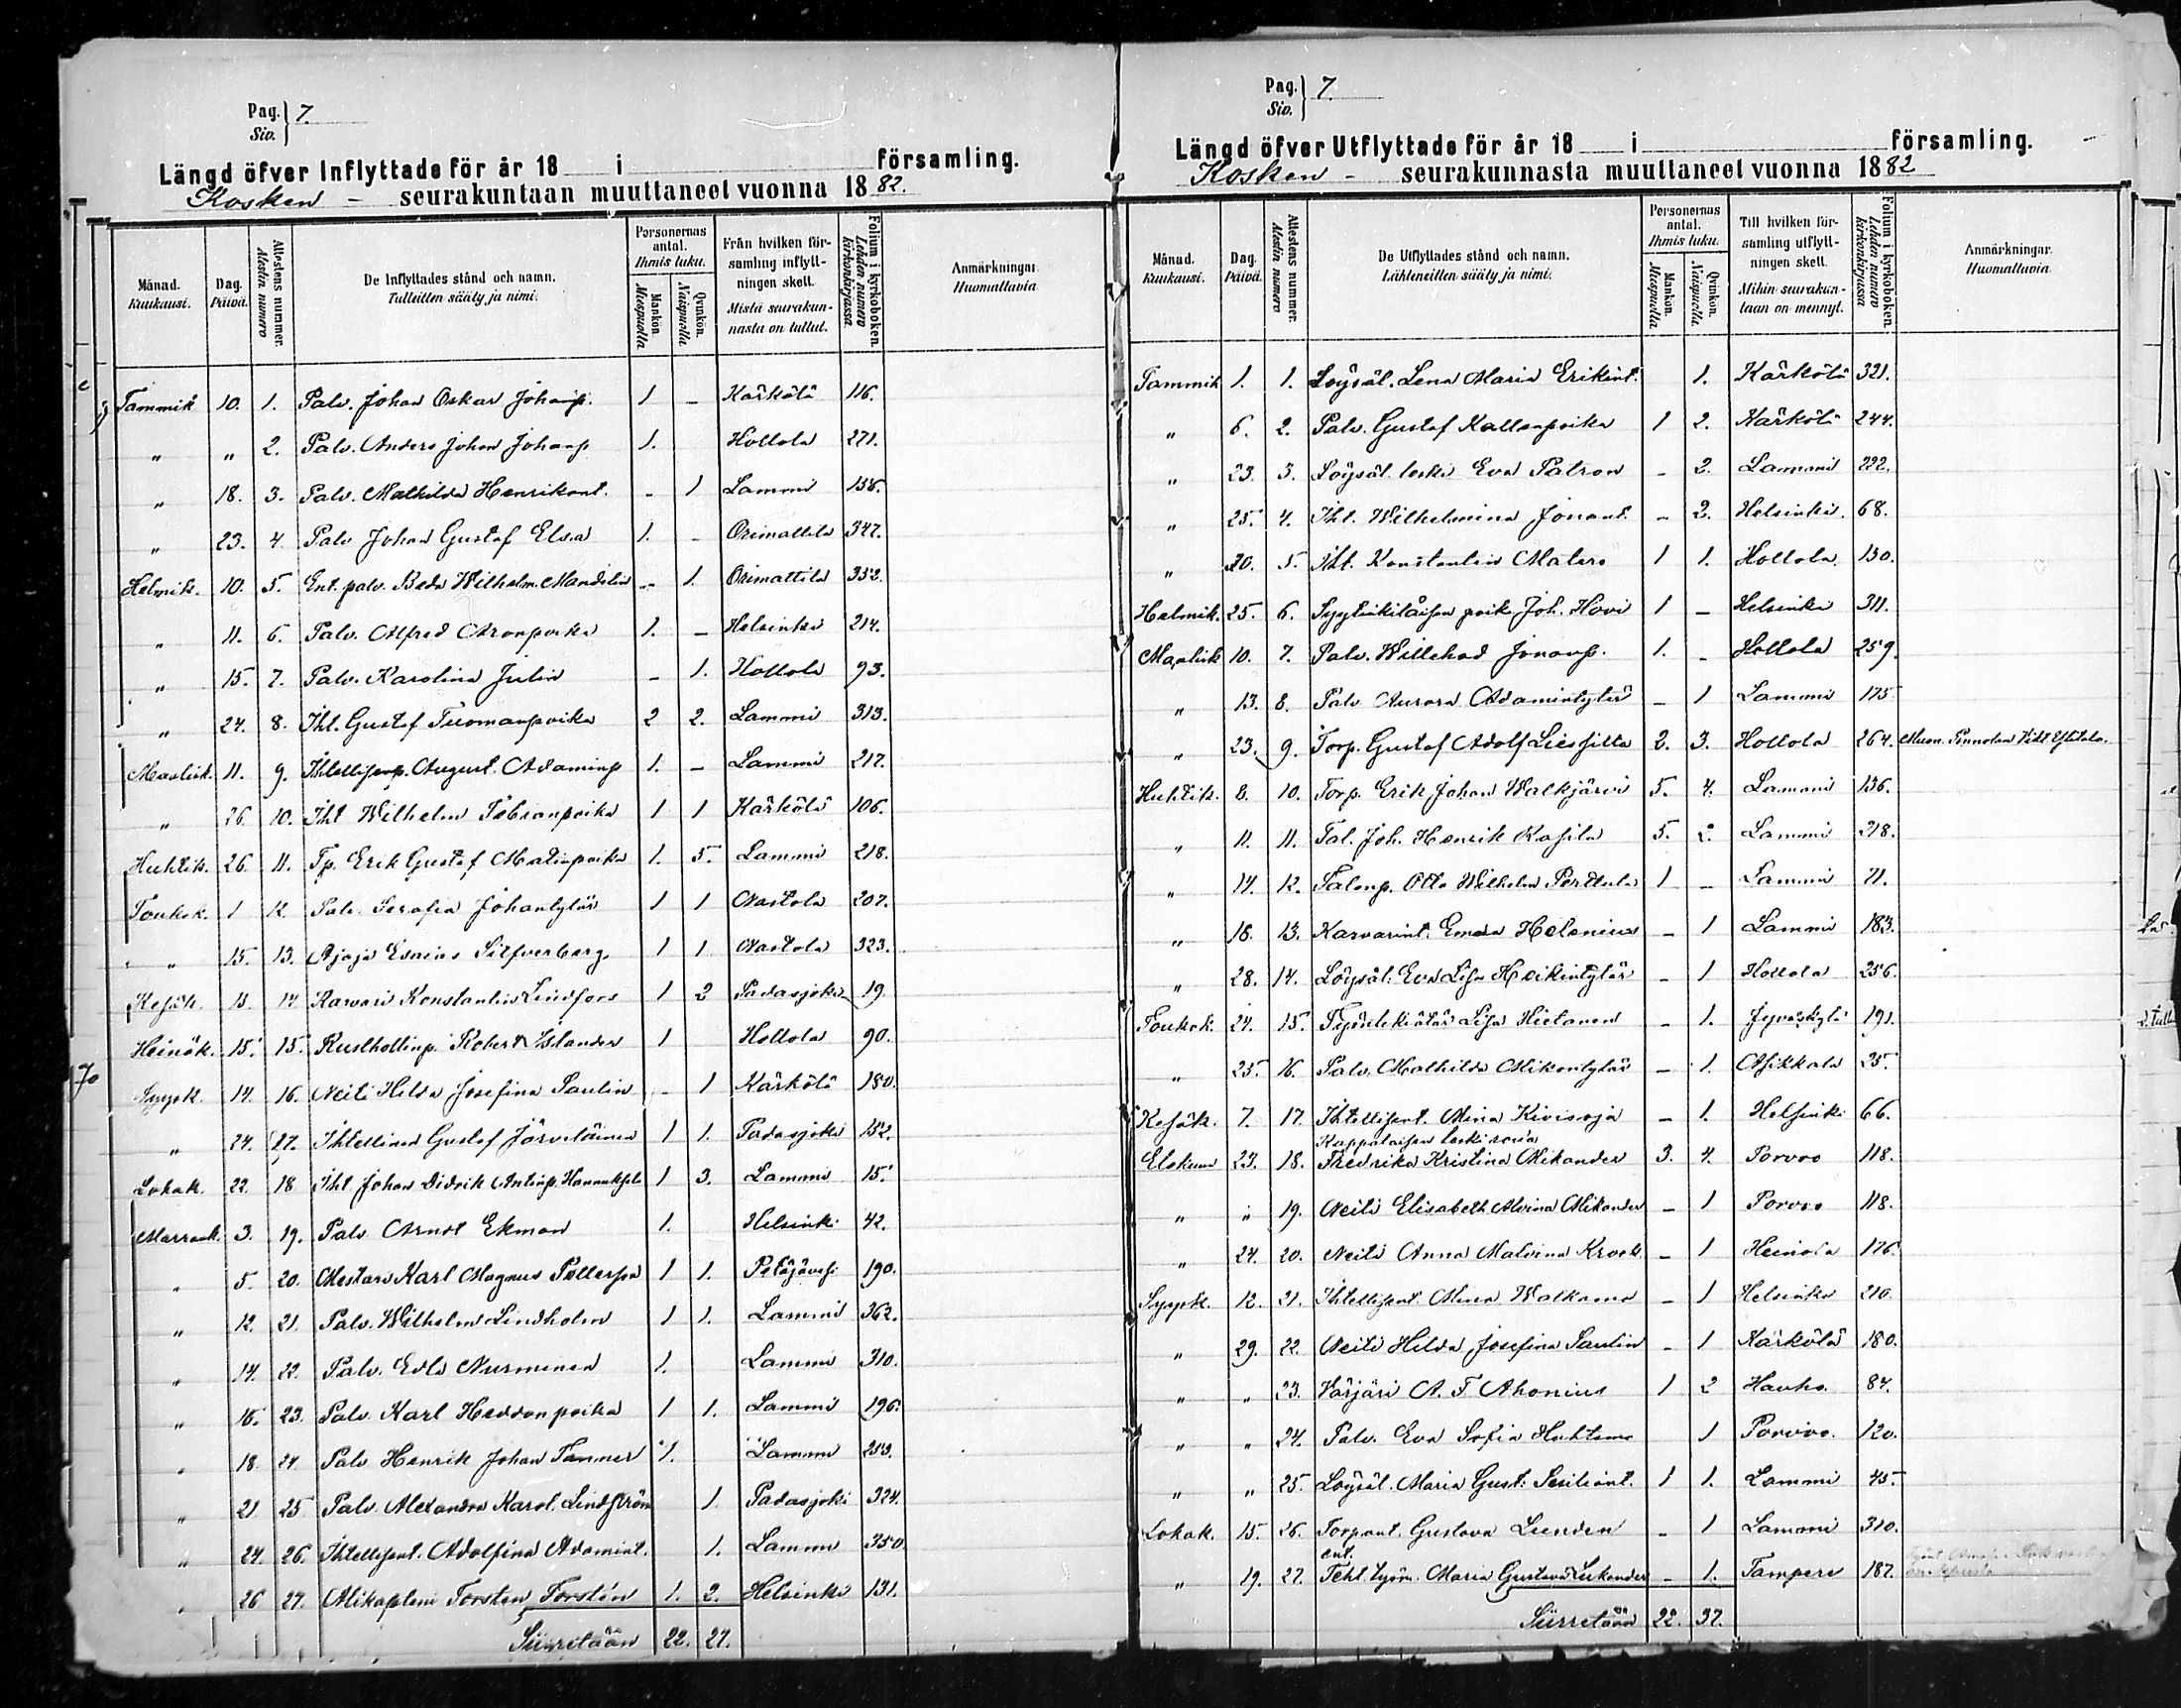 Pag. 7.
Siv.
Längd öfver Inflyttade för år 18 i församling.
Kosken - seurakuntaan muuttaneet vuonna 1882.
Månad. Kuukausi.
Dag. Päivä.
Attestens nummer. Atestin numero
De Inflyttades stånd och namn. Tulleitten sääty ja nimi.
Personernas antal. Ihmis luku.
Mankön. Miespuolia
Qvinkön. Naispuolia
Från hvilken församling inflyttningen skett. Mistä seurakunnasta on tullut.
Folium i kyrkoboken. Lehden numero kirkonkirjassa
Anmärkningar. Huomattavia
Tammik 10. 1. Palv. Johan Oskar Johanp. 1 - Kärkölä 116.
„ „ 2. Palv. Anders Johan Johanp 1. Hollola 271.
„ 18. 3. Palv. Mathilda Henrikant. - 1 Lammi 158.
„ 23. 4. Palv Johan Gustaf Elsa 1. - Orimattila 347.
Helmik. 10. 5. Ent. palv. Beda Wilhelm. Mandelin - 1. Orimattila 352.
„ 11. 6. Palv. Alfred Aronpoika 1. - Helsinki 214.
„ 15. 7. Palv. Karolina Julin - 1. Hollola 93.
„ 24. 8. Iht. Gustaf Tuomanpoika 2 2. Lammi 313.
Maalisk. 11. 9. August Adaminp 1. - Lammi 217.
„ 26. 10. Iht Wilhelm 1 1 Kärkölä 106.
Huhtik. 26. 11. Tp. Erik Gustaf Matinpoika 1. 5. Lammi 218.
Toukok. 1 12 Palv. Serafia Johantytär 1 1 Nastola 207.
„ 15. 13. Ajaja Esaias Silfverberg 1 1 Nastola 323.
Kesäk. 13. 14 Karvari Konstantin Lindfors 1 2 Padasjoki 19.
Heinäk. 15. 15. Rusthollinp. Robert Islander 1 Hollola 90.
Syysk. 14. 16. Neiti Hilda Josefina Paulin - 1 Kärkölä 180.
„ 24. 17. Ihtellinen Gustaf Järveläinen 1 1. Padasjoki 152.
Lokak. 22. 18 Iht Johan Didrik Antinp. 1 3. Lammi 15.
Marrask. 3. 19. Palv Arndt Ekman 1. Helsinki 42.
„ 5. 20. Mestari Karl Magnus Pettersson 1 1. Petäjävesi 190.
„ 12. 21. Palv. Wilhelm Lindholm 1 1. Lammi 362.
„ 14. 22. Palv. Edla Nurminen 1. Lammi 310.
„ 16. 23. Palv. Karl Heddonpoika 1 1. Lammi 196.
„ 18. 24. Palv Henrik Johan Tanner 1. Lammi
„ 21 25 Palv. Alexandra Karol. Lindström 1. Padasjoki 324.
„ 24. 26. Ihtellisent. Adolfina Adamint. 1. Lammi 350
„ 26 27. Alikapteni Torsten Forstén 1. 2. Helsinki 131.
Siirretään 22. 27.
Pag. 7.
Siv.
Längd öfver Utflyttade för år 18 i församling.
Kosken - seurakunnasta muuttaneet vuonna 1882
Månad. Kuukausi.
Dag. Päivä.
Attestens nummer. Atestin numero
De Utflyttades stånd och namn. Lähteneitten sääty ja nimi.
Personernas antal. Ihmis luku.
Mankön. Miespuolia
Qvinkön. Naispuolia
Till hvilken församling utflyttningen skett. Mihin seurakuntaan on mennyt.
Folium i kyrkoboken. Lehden numero kirkonkirjassa
Anmärkningar. Huomattavia
Tammik 1. 1. Löysäl. Lena Maria Erikint. 1. Kärkölä 321.
„ 6. 2. Palv. Gustaf Kallenpoika 1 2. Kärkölä 244.
„ 23. 3. Löysäl. leski Eva Patron - 2. Lammi 222.
„ 25. 4. Iht. Wilhelmina Jonant. - 2. Helsinki. 68.
„ 30. 5. Iht. Konstantin Matero 1 1. Hollola 130.
Helmik. 25. 6. Syytinkiläisen poik. Joh. Hovi 1 - Helsinki 311.
Maalisk 10. 7. Palv. Willehad Jonanp. 1. - Hollola 259.
„ 13. 8. Palv Aurora Adamintytär - 1 Lammi 175
„ 23. 9. Torp. Gustaf Adolf Liesjilta 2. 3. Hollola 264.
Huhtik. 8. 10. Torp. Erik Johan Walkjärvi 5. 4. Lammi 136.
„ 11. 11. Tal. Joh. Henrik Kasila 5. 2. Lammi 218.
„ 14. 12. Talonp. Otto Wilhelm Perttula 1 - Lammi 71.
„ 18. 13. Karvarint. Emma Helenius - 1 Lammi 183.
„ 28. 14. Löysäl: Eva Lisa Heikintytär - 1 Hollola 256.
Toukok. 24. 15. Lisa Hietanen - 1. Jyväskylä 191.
„ 25. 16. Palv. Mathilda Mikontytär - 1. Asikkala 25.
Kesäk. 7. 17. Ihtellisent. Mina Kivisoja - 1. Helsinki 66.
Kappalaisen leski rova
Elokuu 23. 18. Fredrika Kristina Mikander 3. 4. Porvoo 118.
„ „ 19. Neiti Elisabeth Alvina Mikander - 1 Porvoo 118.
„ 24. 20. Neiti Anna Malvina Krook - 1 Heinola 176.
Syysk. 12. 21. Ihtellisent. Mina Walkama - 1 Helsinki 210.
„ 29. 22. Neiti Hilda Josefina Paulin - 1 Kärkölä 180.
„ „ 23. Värjäri A. F. Ahonius 1 2 Hauho. 84.
„ „ 24. Palv. Eva Sofia 1 Porvoo. 120.
„ „ 25. Löysäl. Maria Gust: 1 1. Lammi 45.
Lokak. 15. 26. Torpant. Gustava Lunden - 1 Lammi 310.
ent.
„ 19. 27. Teht. työm. Maria Gustava - 1. Tampere 187.
Siirretään 22. 37.